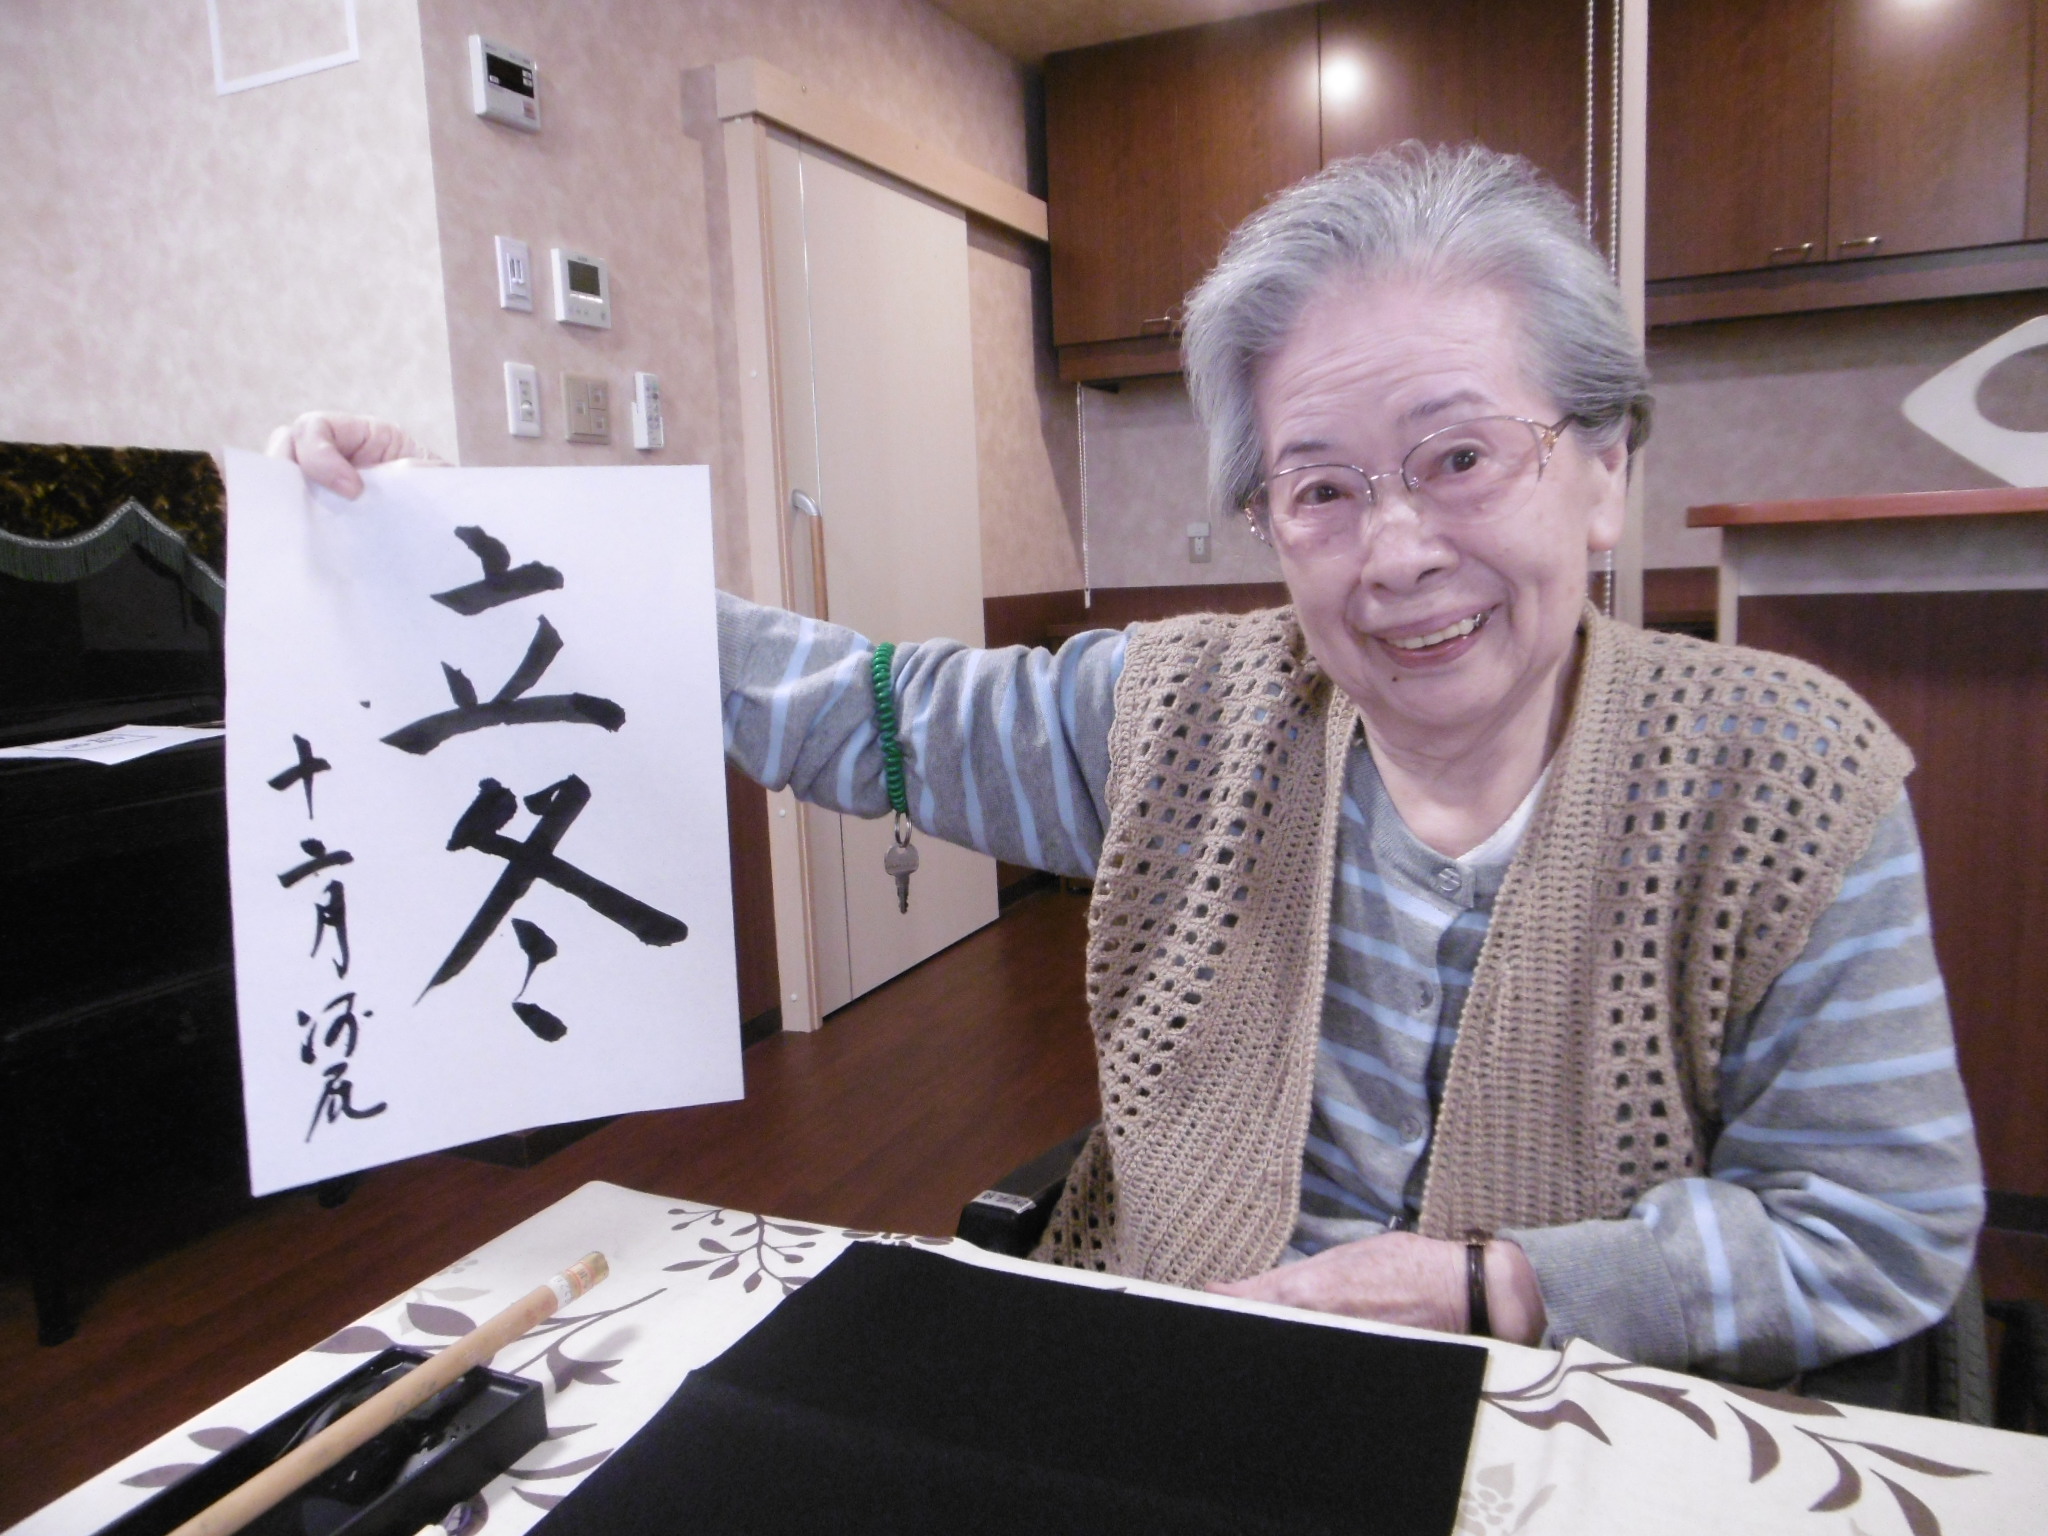 立冬
十二月 河原